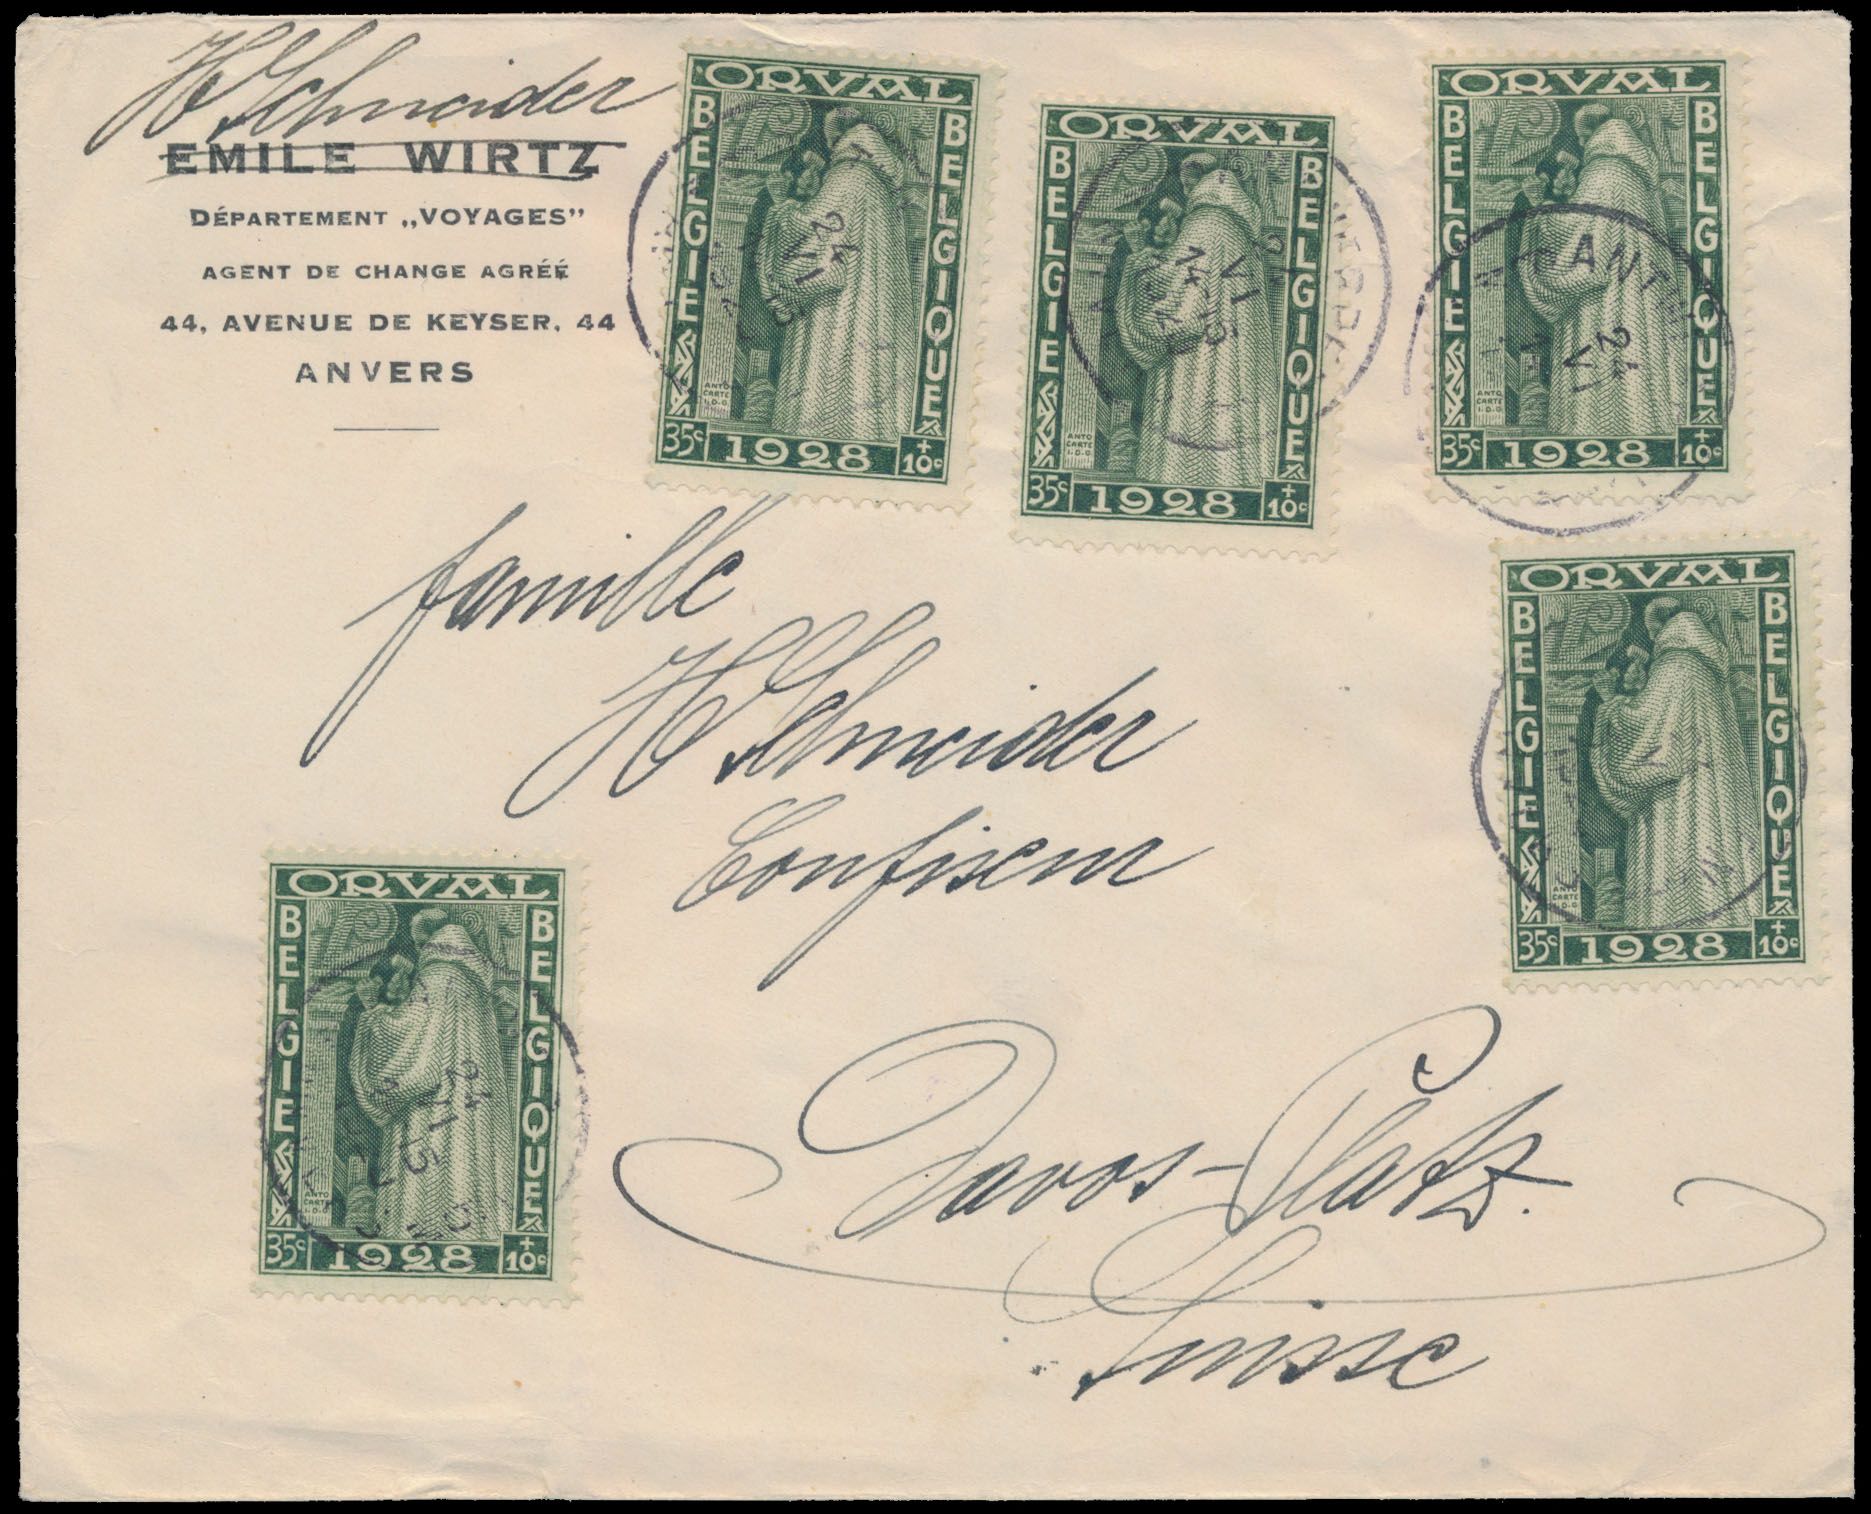 H Schneider
EMILE WIRTZ
DÉPARTEMENT „VOYAGES”
AGENT DE CHANGE AGRÉÉ
44, AVENUE DE KEYSER, 44
ANVERS
ORVAL
BELGIE
BELGIQUE
ANTO
CARTE
I.D.G.
35c
1928
+10c
24
VI
ORVAL
BELGIE
BELGIQUE
ANTO
CARTE
I.D.G.
35c
1928
+10c
VI
14
ORVAL
BELGIE
BELGIQUE
ANTO
CARTE
I.D.G.
35c
1928
+10c
ANTW
24
VI
famille
H Schneider
Confiseur
ORVAL
BELGIE
BELGIQUE
ANTO
CARTE
I.D.G.
35c
1928
+10c
ORVAL
BELGIE
BELGIQUE
ANTO
CARTE
I.D.G.
35c
1928
+10c
24
VI
Davos-Platz.
Suisse